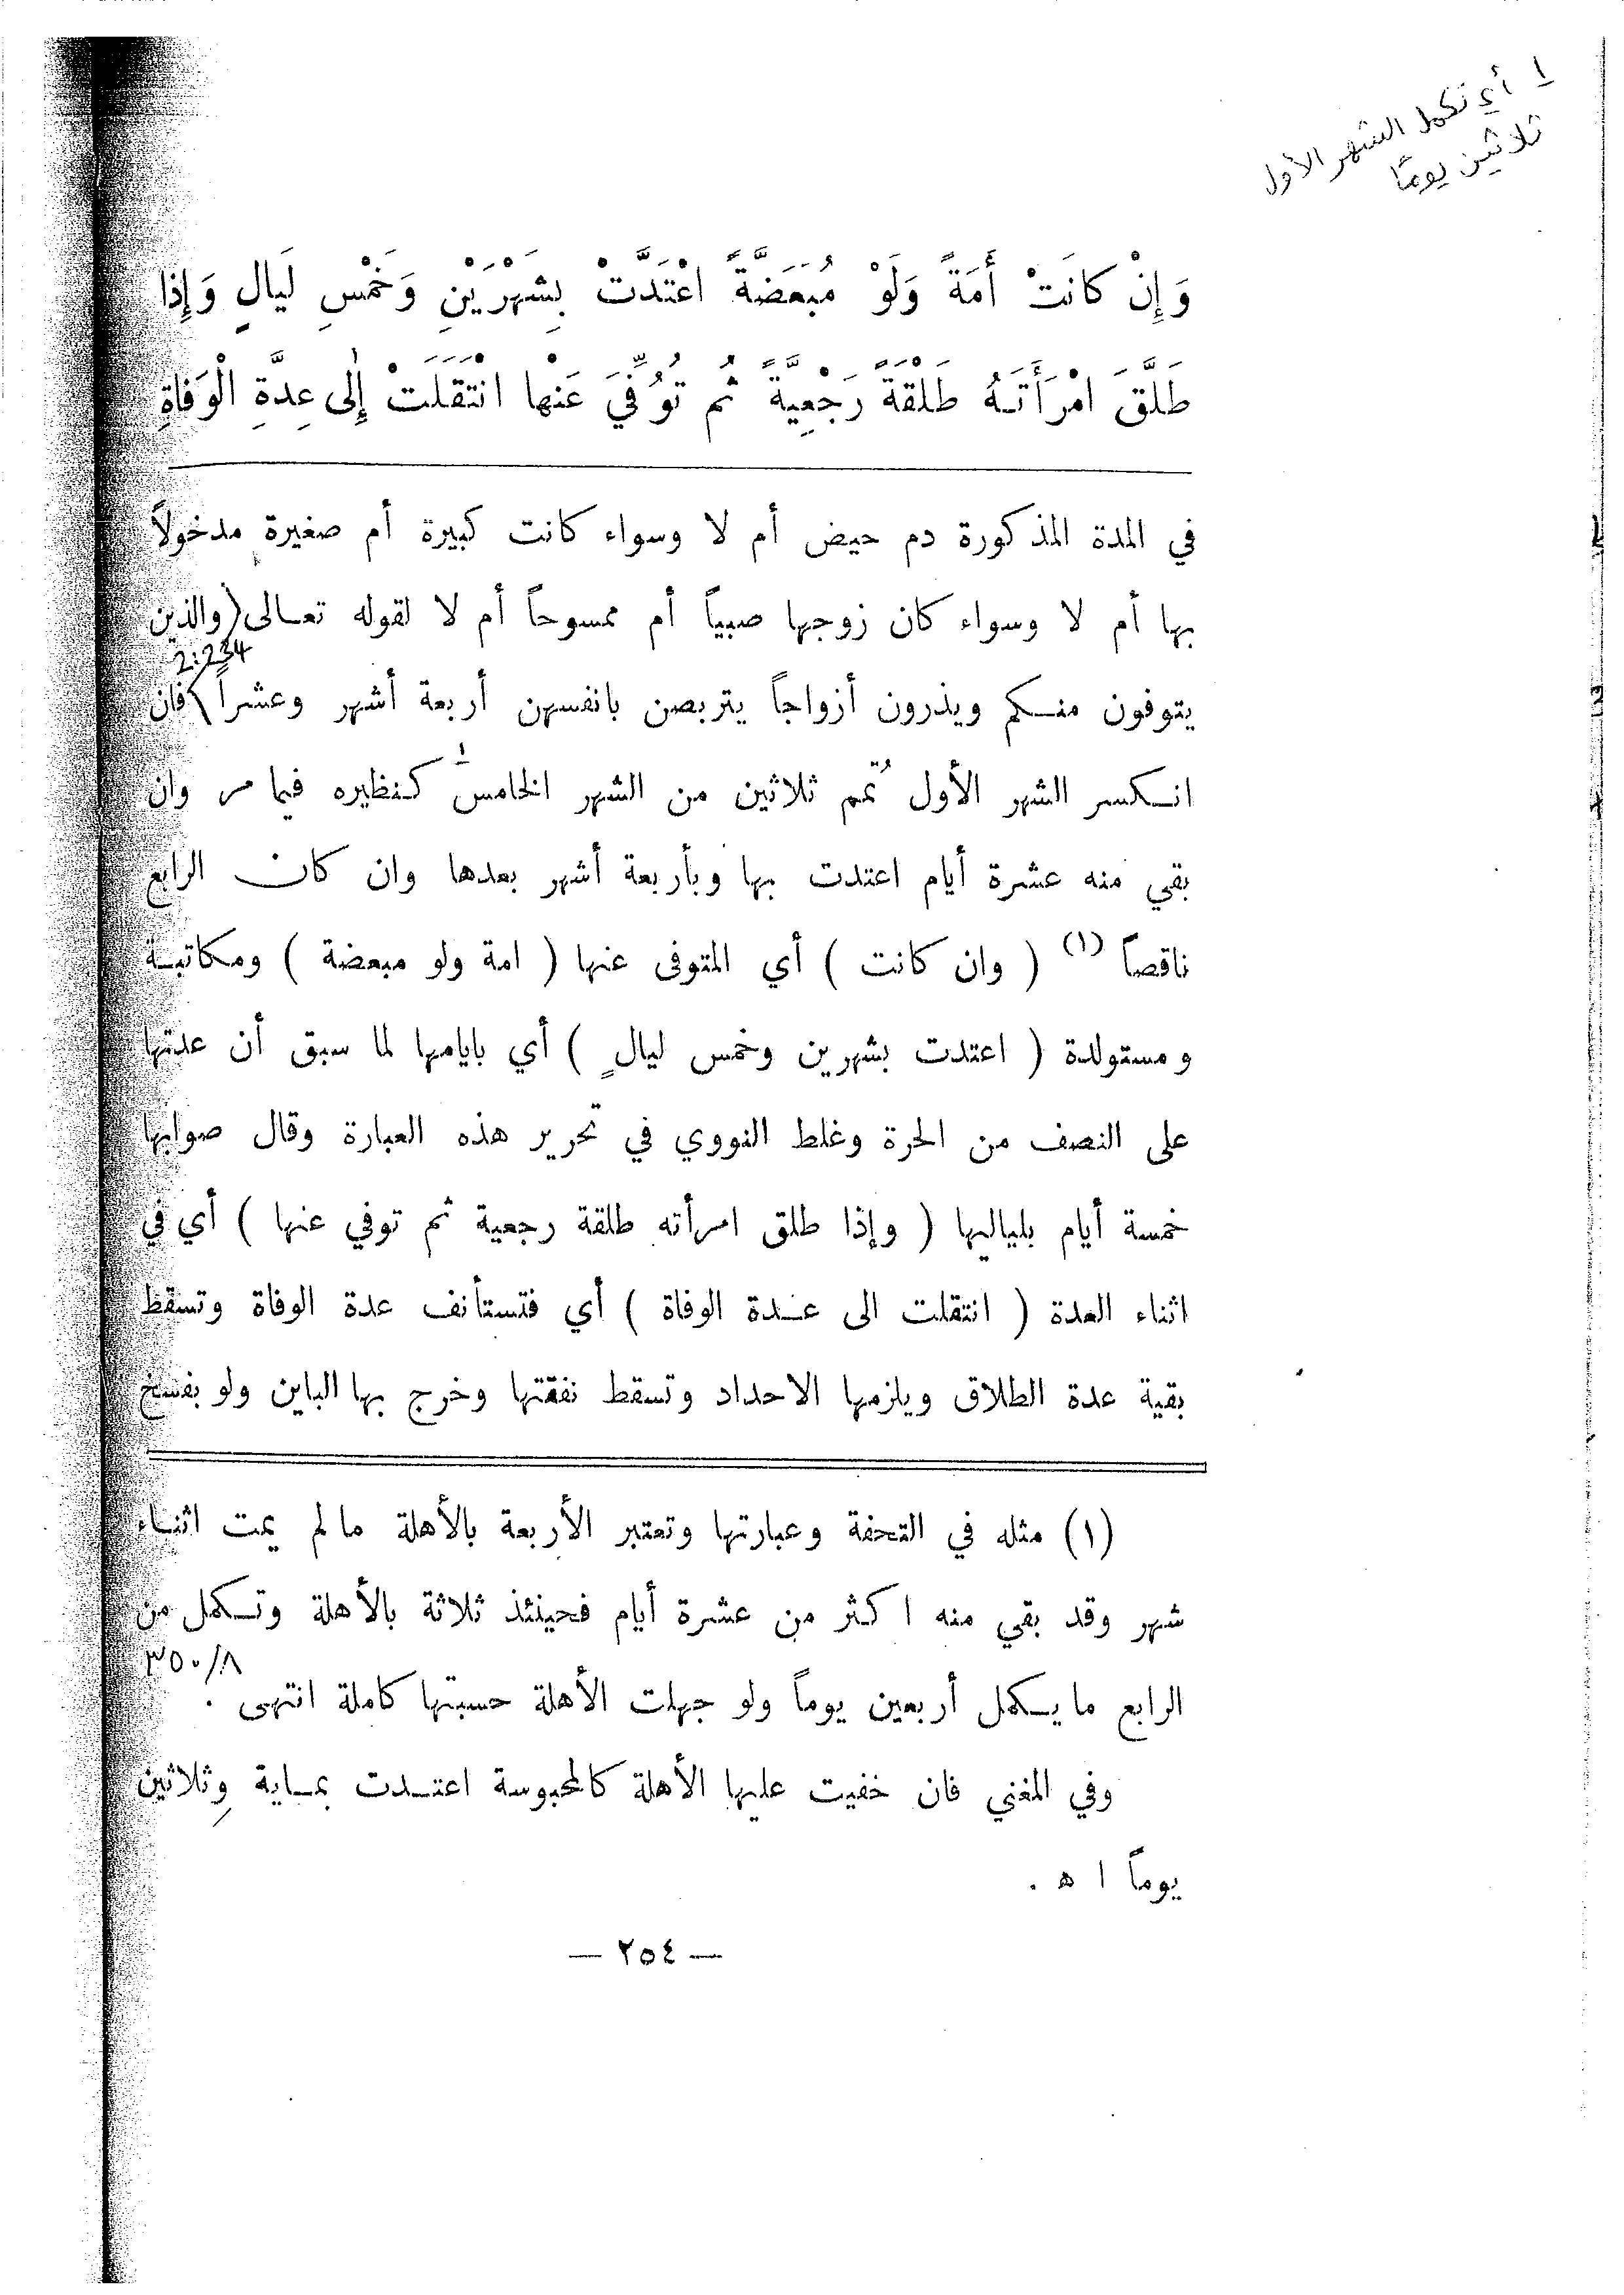 ١ أي تكمل الشهر الأول
ثلاثين يومًا
وَإِنْ كانَتْ أَمَةً وَلَوْ مُبَعَضَّةً اعْتَدَّتْ بِشَهْرَيْنِ وَخَمْسِ لَيَالٍ وَإِذا
طَلَّقَ امْرَأَتَهُ طَلْقَةً رَجْعِيَّةً ثُم تَوُفِّيَ عَنْها انْتَقَلَتْ إِلى عِدَّةِ الْوَفاةِ
في المدة المذكورة دم حيض أم لا وسواء كانت كبيرة أم صغيرة مدخولاً
بها أم لا وسواء كان زوجها صبياً أم ممسوحاً أم لا لقوله تعالى (والذين
2:234
يتوفون منكم ويذرون أزواجاً يتربصن بانفسهن أربعة أشهر وعشراً) فان
انكسر الشهر الأول تُمم ثلاثين من الشهر الخامس ١ كنظيره فيما مر وان
بقي منه عشرة أيام اعتدت بها وبأربعة أشهر بعدها وان كان الرابع
ناقصاً (١) ( وان كانت ) أي المتوفى عنها ( امة ولو مبعضة ) ومكاتبة
ومستولدة ( اعتدت بشهرين وخمس ليالٍ ) أي بايامها لما سبق أن عدتها
على النصف من الحرة وغلط النووي في تحرير هذه العبارة وقال صوابها
خمسة أيام بلياليها ( وإذا طلق امرأته طلقة رجعية ثم توفي عنها ) أي في
اثناء العدة ( انتقلت الى عدة الوفاة ) أي فتستأنف عدة الوفاة وتسقط
بقية عدة الطلاق ويلزمها الاحداد وتسقط نفقتها وخرج بها الباين ولو بفسخ
(١) مثله في التحفة وعبارتها وتعتبر الأربعة بالأهلة مالم يمت اثناء
شهر وقد بقي منه اكثر من عشرة أيام فحينئذ ثلاثة بالأهلة وتكمل من
٣٥٠/٨
الرابع مايكمل أربعين يوماً ولو جهلت الأهلة حسبتها كاملة انتهى .
وفي المغني فان خفيت عليها الأهلة كالمحبوسة اعتدت بماية وثلاثين
يوماً ا ه .
— ٢٥٤ —